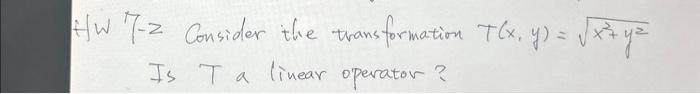 HW 7-2 Consider the transformation T(x, y) = √x²+y²
Is T a linear operator?